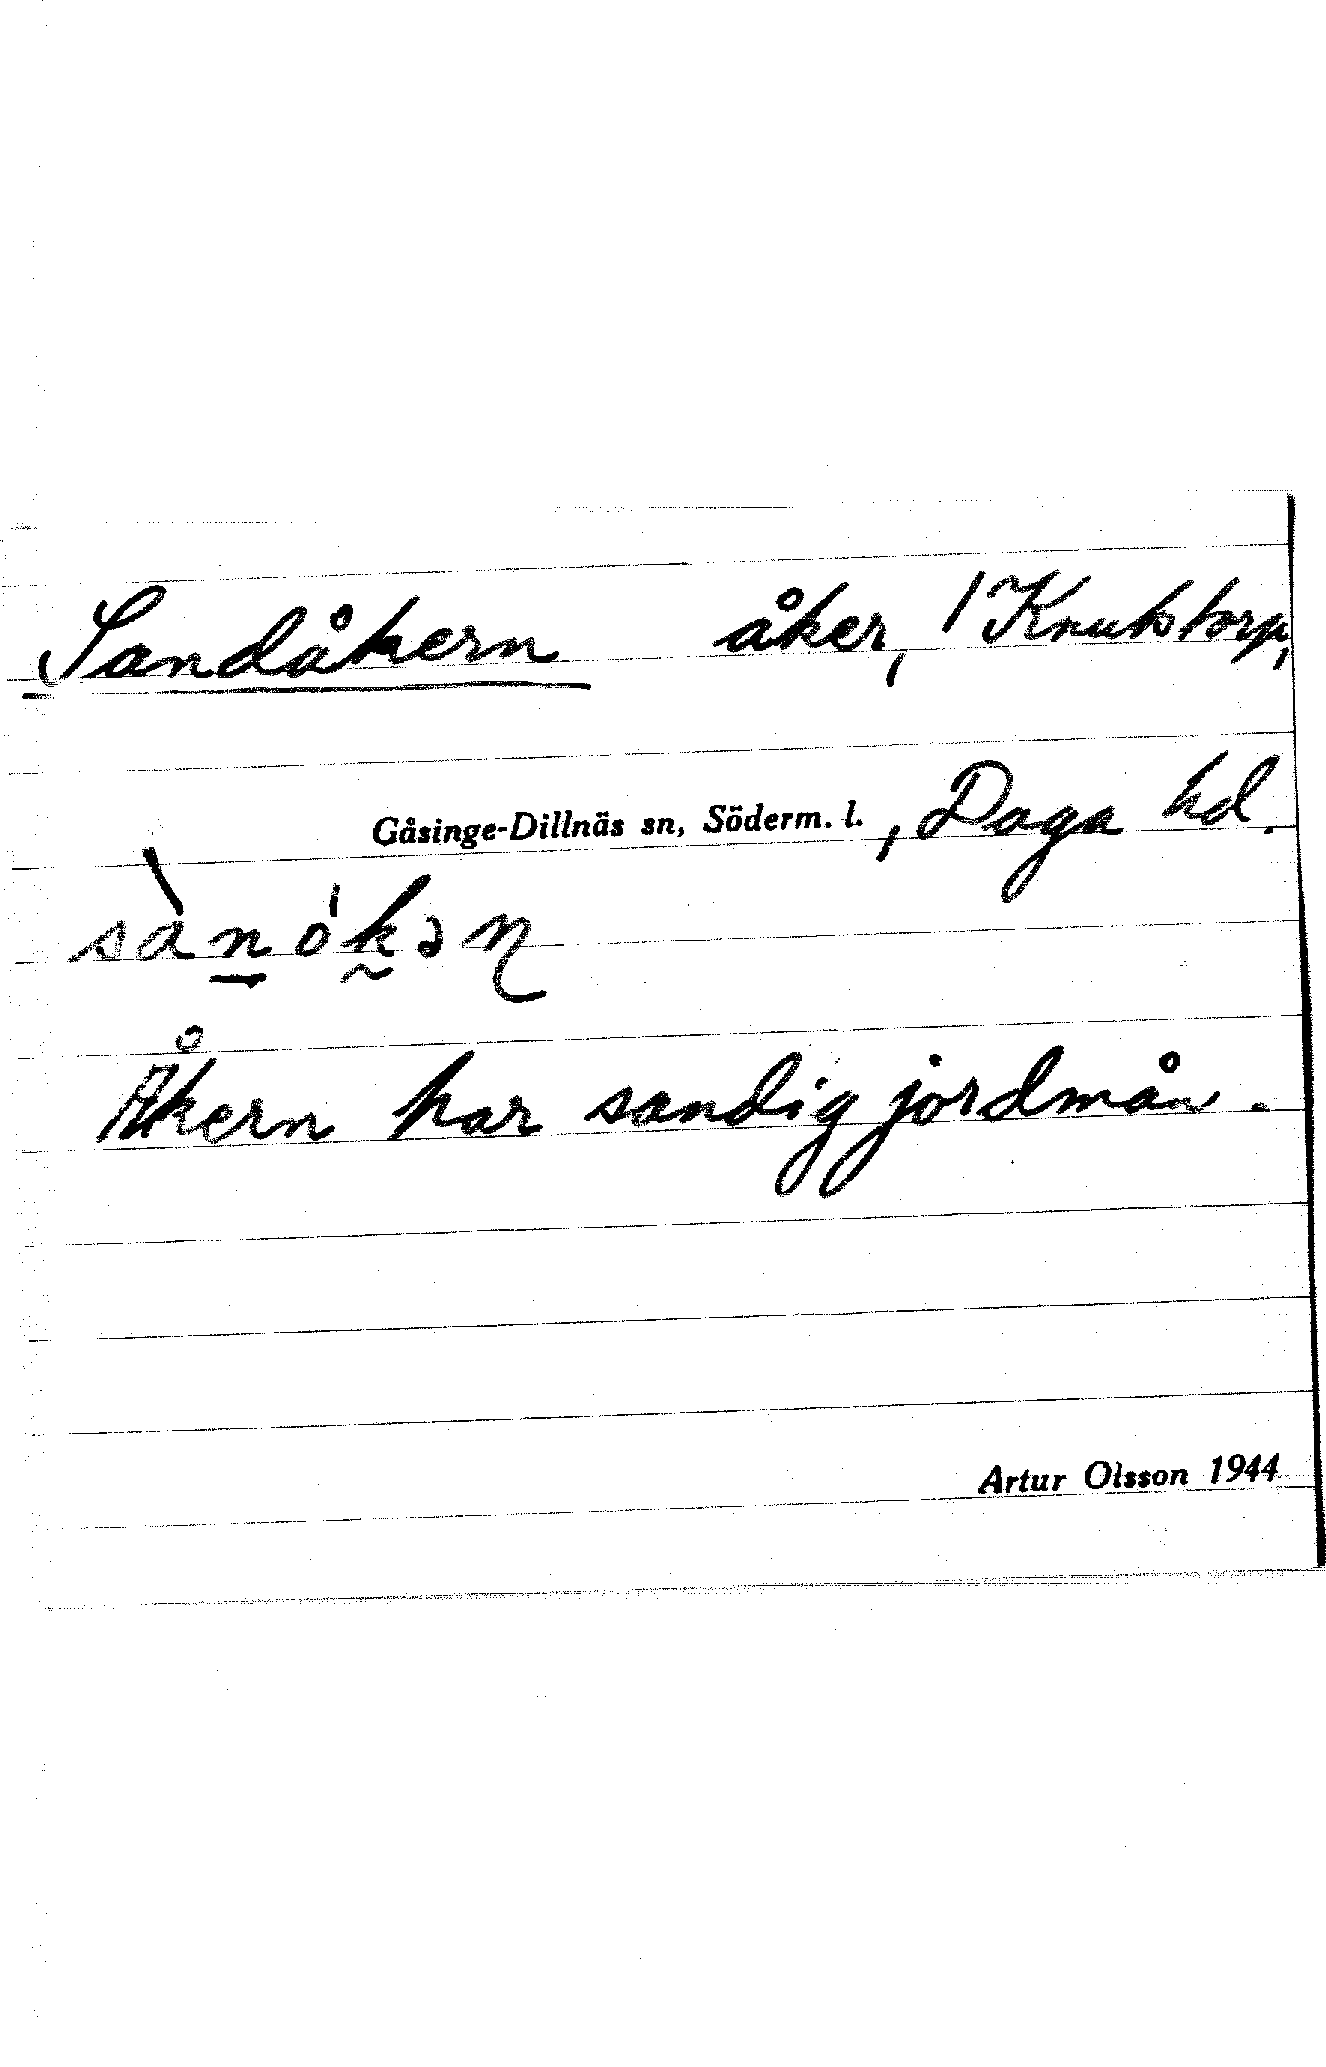 Sandåkern åker, 1 Knutstorp,
Gåsinge-Dillnäs sn, Söderm. l., Daga hd.
sànókəɳ
Åkern har sandig jordmån.
Artur Olsson 1944